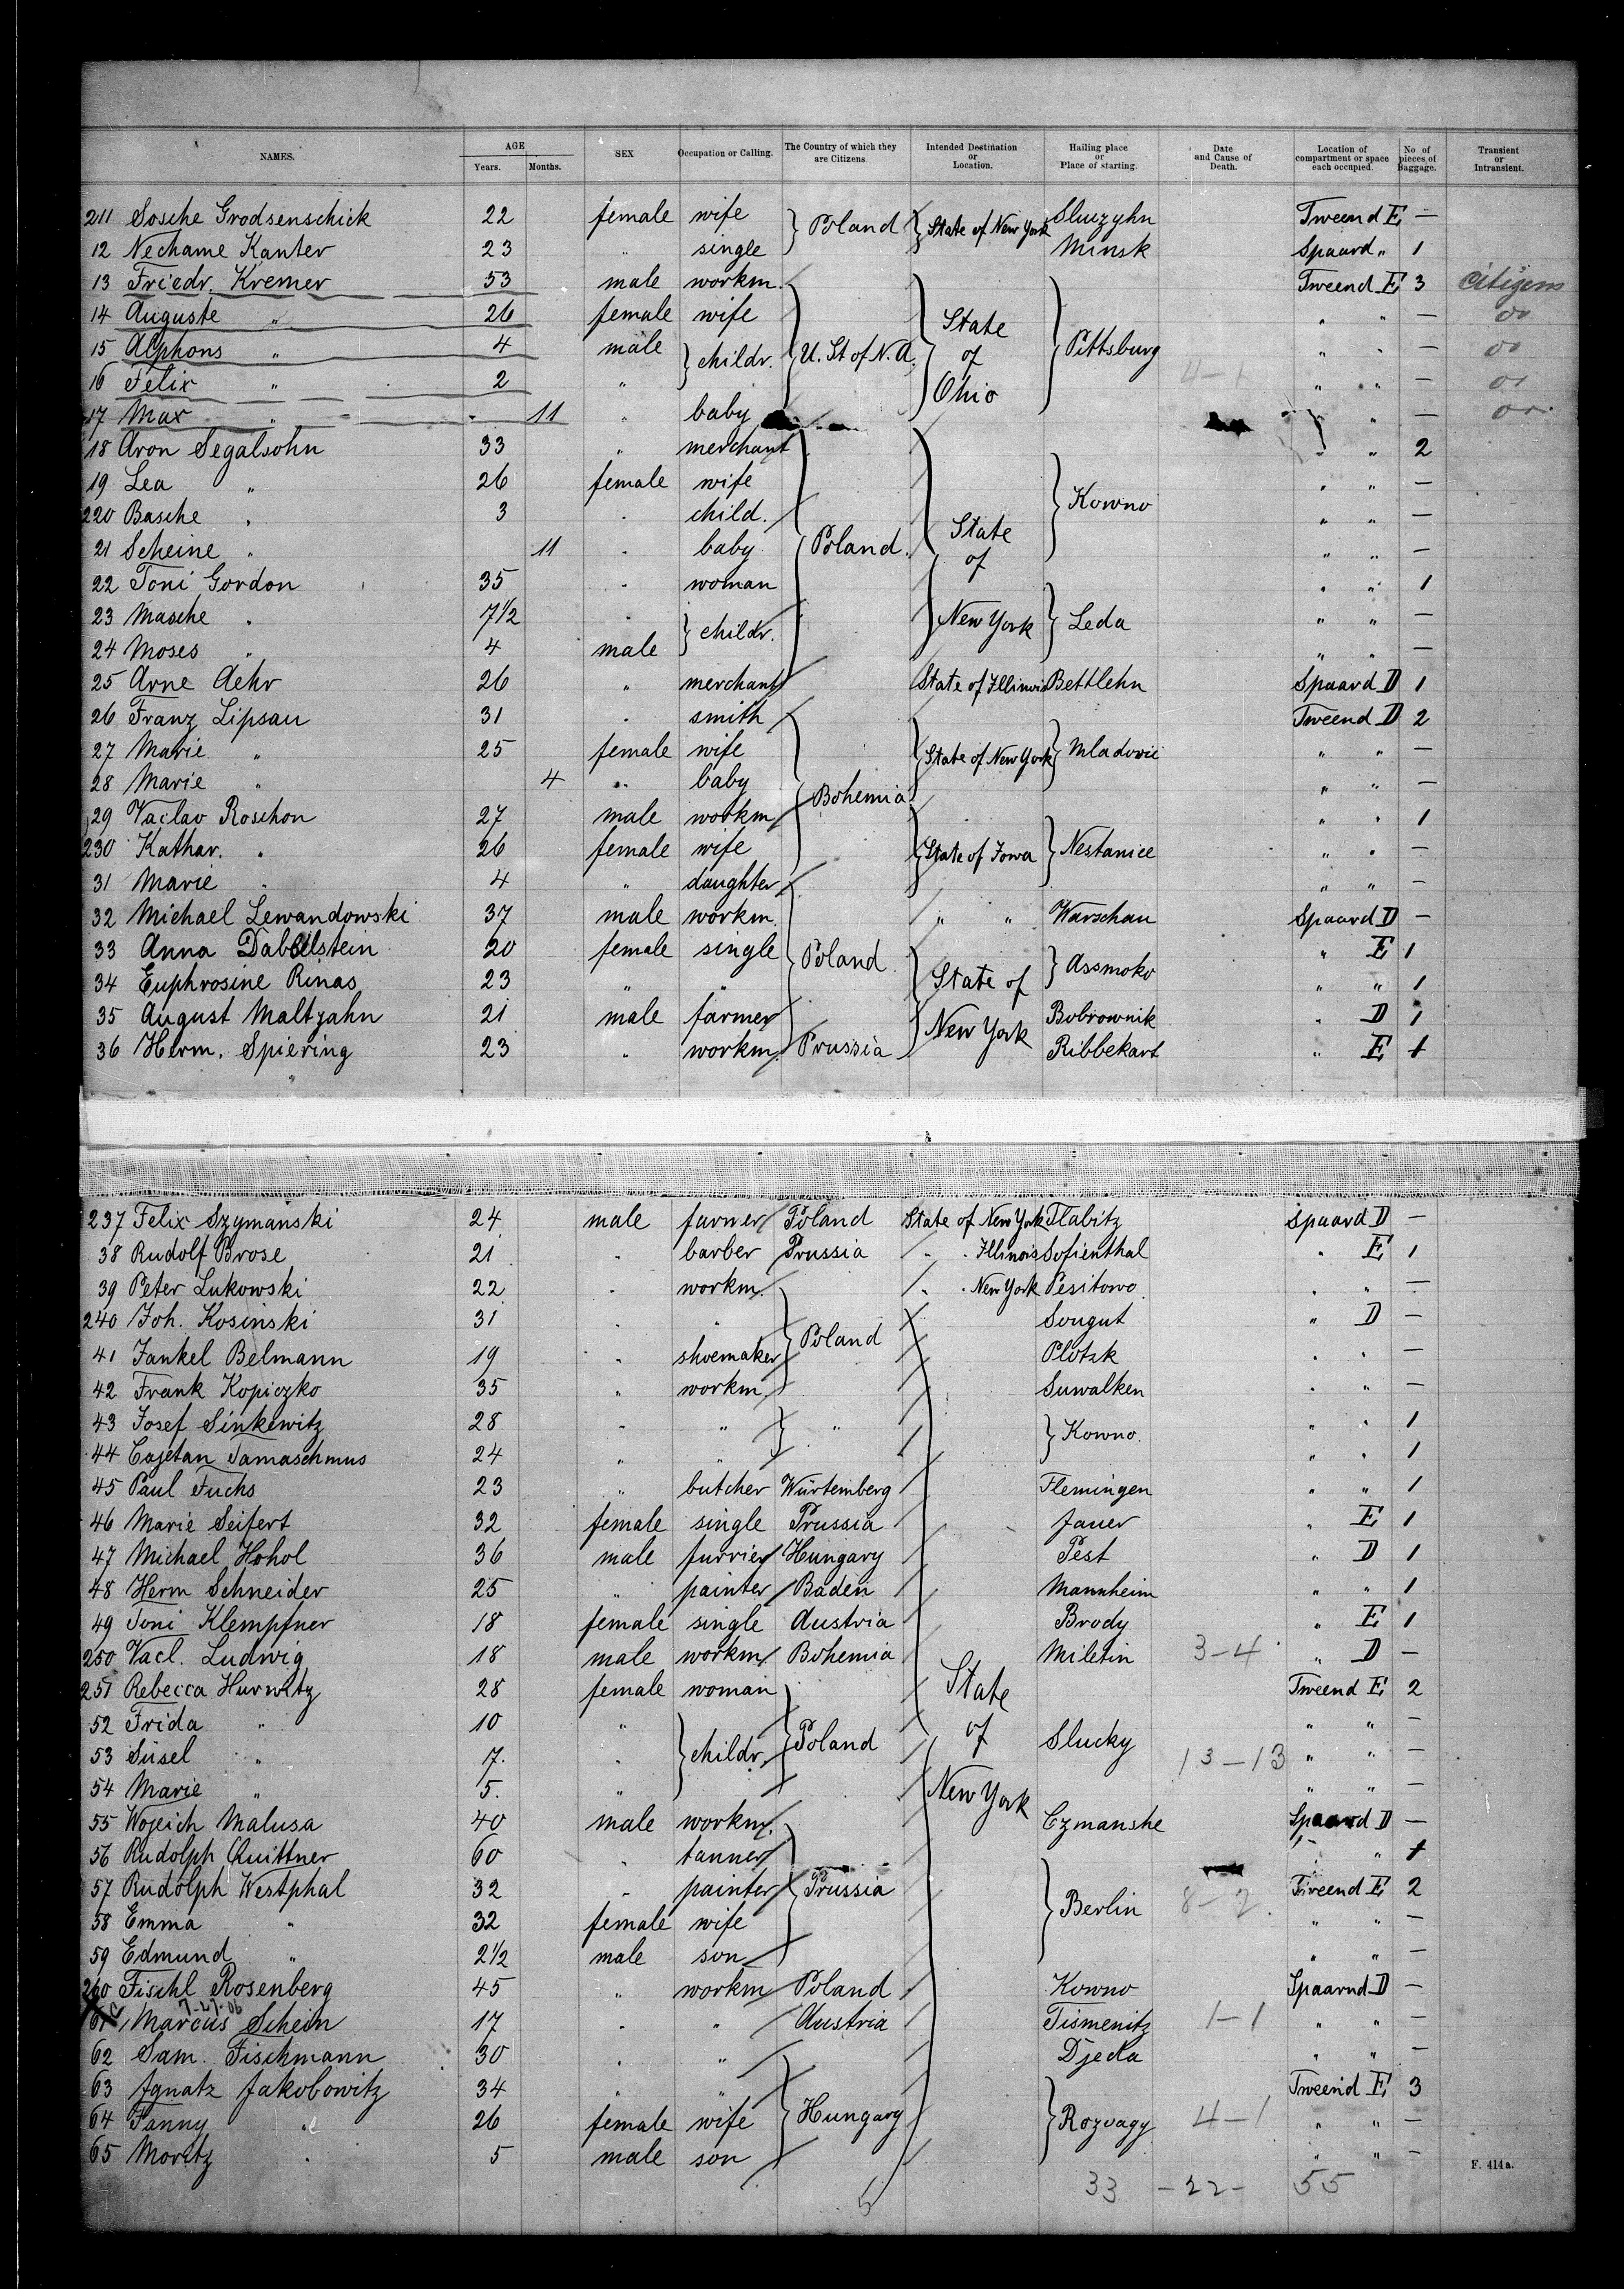 NAMES. AGE Years. Months. SEX Occupation or Calling. The Country of which they are Citizens Intended Destination or Location. Hailing place or Place of starting. Date and Cause of Death. Location of compartment or space each occupied. No. of pieces of Baggage. Transient or Intransient.
211 Sosche Grodsenschick 22 female wife Poland State of New York Sluzyhn Tweend E —
12 Nechame Kanter 23 " single Minsk Spaard " 1
13 Friedr. Kremer 53 male workm. Tweend E 3 citizens
14 Auguste " 26 female wife State " " — do
15 Alphons " 4 male childr. U. St of N. A. of Pittsburg " " — do
16 Felix " 2 " Ohio 4-1 " " — do
17 Max " - 11 " baby " — do
18 Aron Segalsohn 33 " merchant " " 2
19 Lea " 26 female wife Kowno " " —
220 Basche " 3 " child. State " " —
21 Scheine " 11 " baby Poland. of " " —
22 Toni Gordon 35 " woman " " 1
23 Masche " 7 1/2 " childr. New York Leda " " —
24 Moses " 4 male " " —
25 Arne Aehr 26 " merchant State of Illinois Bettlehn Spaard D 1
26 Franz Lipsau 31 " smith Tweend D 2
27 Marie " 25 female wife State of New York Mladovic " " —
28 Marie " 4 " baby Bohemia " " —
29 Vaclav Roschon 27 male workm " " 1
230 Kathar. " 26 female wife State of Iowa Nestanice " " —
31 Marie " 4 " daughter " " —
32 Michael Lewandowski 37 male workm. " " Warschau Spaard D —
33 Anna Dabelstein 20 female single Poland " E 1
34 Euphrosine Rinas 23 " " State of Assmoko " " 1
35 August Maltzahn 21 male farmer New York Bobrownik " D 1
36 Herm. Spiering 23 " workm. Prussia Ribbekart " E 1
237 Felix Szymanski 24 male farmer Poland State of New York Flabitz Spaard D —
38 Rudolf Brose 21 " barber Prussia " " Illinois Sofienthal " E 1
39 Peter Lukowski 22 " workm. " " New York Pesitowo " " —
240 Joh. Kosinski 31 " " Poland Sougut " D —
41 Jankel Belmann 19 " shoemaker Plotzk " " —
42 Frank Kopiczko 35 " workm. Suwalken " " —
43 Josef Sinkewitz 28 " " " Kowno. " " 1
44 Cajetan Tamaschmus 24 " " " " 1
45 Paul Fuchs 23 " butcher Würtemberg Flemingen " " 1
46 Marie Seifert 32 female single Prussia Jauer " E 1
47 Michael Hohol 36 male furrier Hungary Pest " D 1
48 Herm Schneider 25 " painter Baden Mannheim " " 1
49 Toni Klempfner 18 female single Austria Brody " E 1
250 Vacl. Ludwig 18 male workm. Bohemia Miletin 3-4 " D —
251 Rebecca Hurwitz 28 female woman State Tweend E 2
52 Frida " 10 " Poland of Slucky " " —
53 Süsel " 7. " childr. 13-13 " " —
54 Marie " 5. " New York " " —
55 Wojeich Malusa 40 male workm. Czmanshe Spaard D —
56 Rudolph Quittner 60 " tanner " " 1
57 Rudolph Westphal 32 " painter Prussia Berlin 8-2. Tweend E 2
58 Emma " 32 female wife " " —
59 Edmund " 2 1/2 male son " " —
260 Fischl Rosenberg 45 " workm Poland Kowno Spaarnd D —
7-27-06
61 Marcus Schein 17 " " Austria Tismenitz 1-1 " " —
62 Sam. Fischmann 30 " " Djeda " " —
63 Ignatz Jakobowitz 34 " " Tweend E 3
64 Fanny " 26 female wife Hungary Rozvagy 4-1 " " —
65 Moritz " 5 male son " " —
5 33 -22- 55
F. 414a.